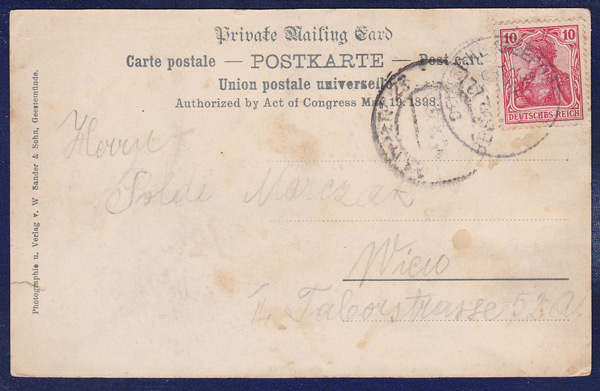 Private Mailing Card
Carte postale — POSTKARTE — Post card
Union postale universelle
Authorized by Act of Congress May 19. 1898.
10 10
DEUTSCHES REICH
Herrn
Marczak
Wien
II. Taborstrasse 52 A.
Photographie u. Verlag v. W Sander & Sohn, Geestemünde.